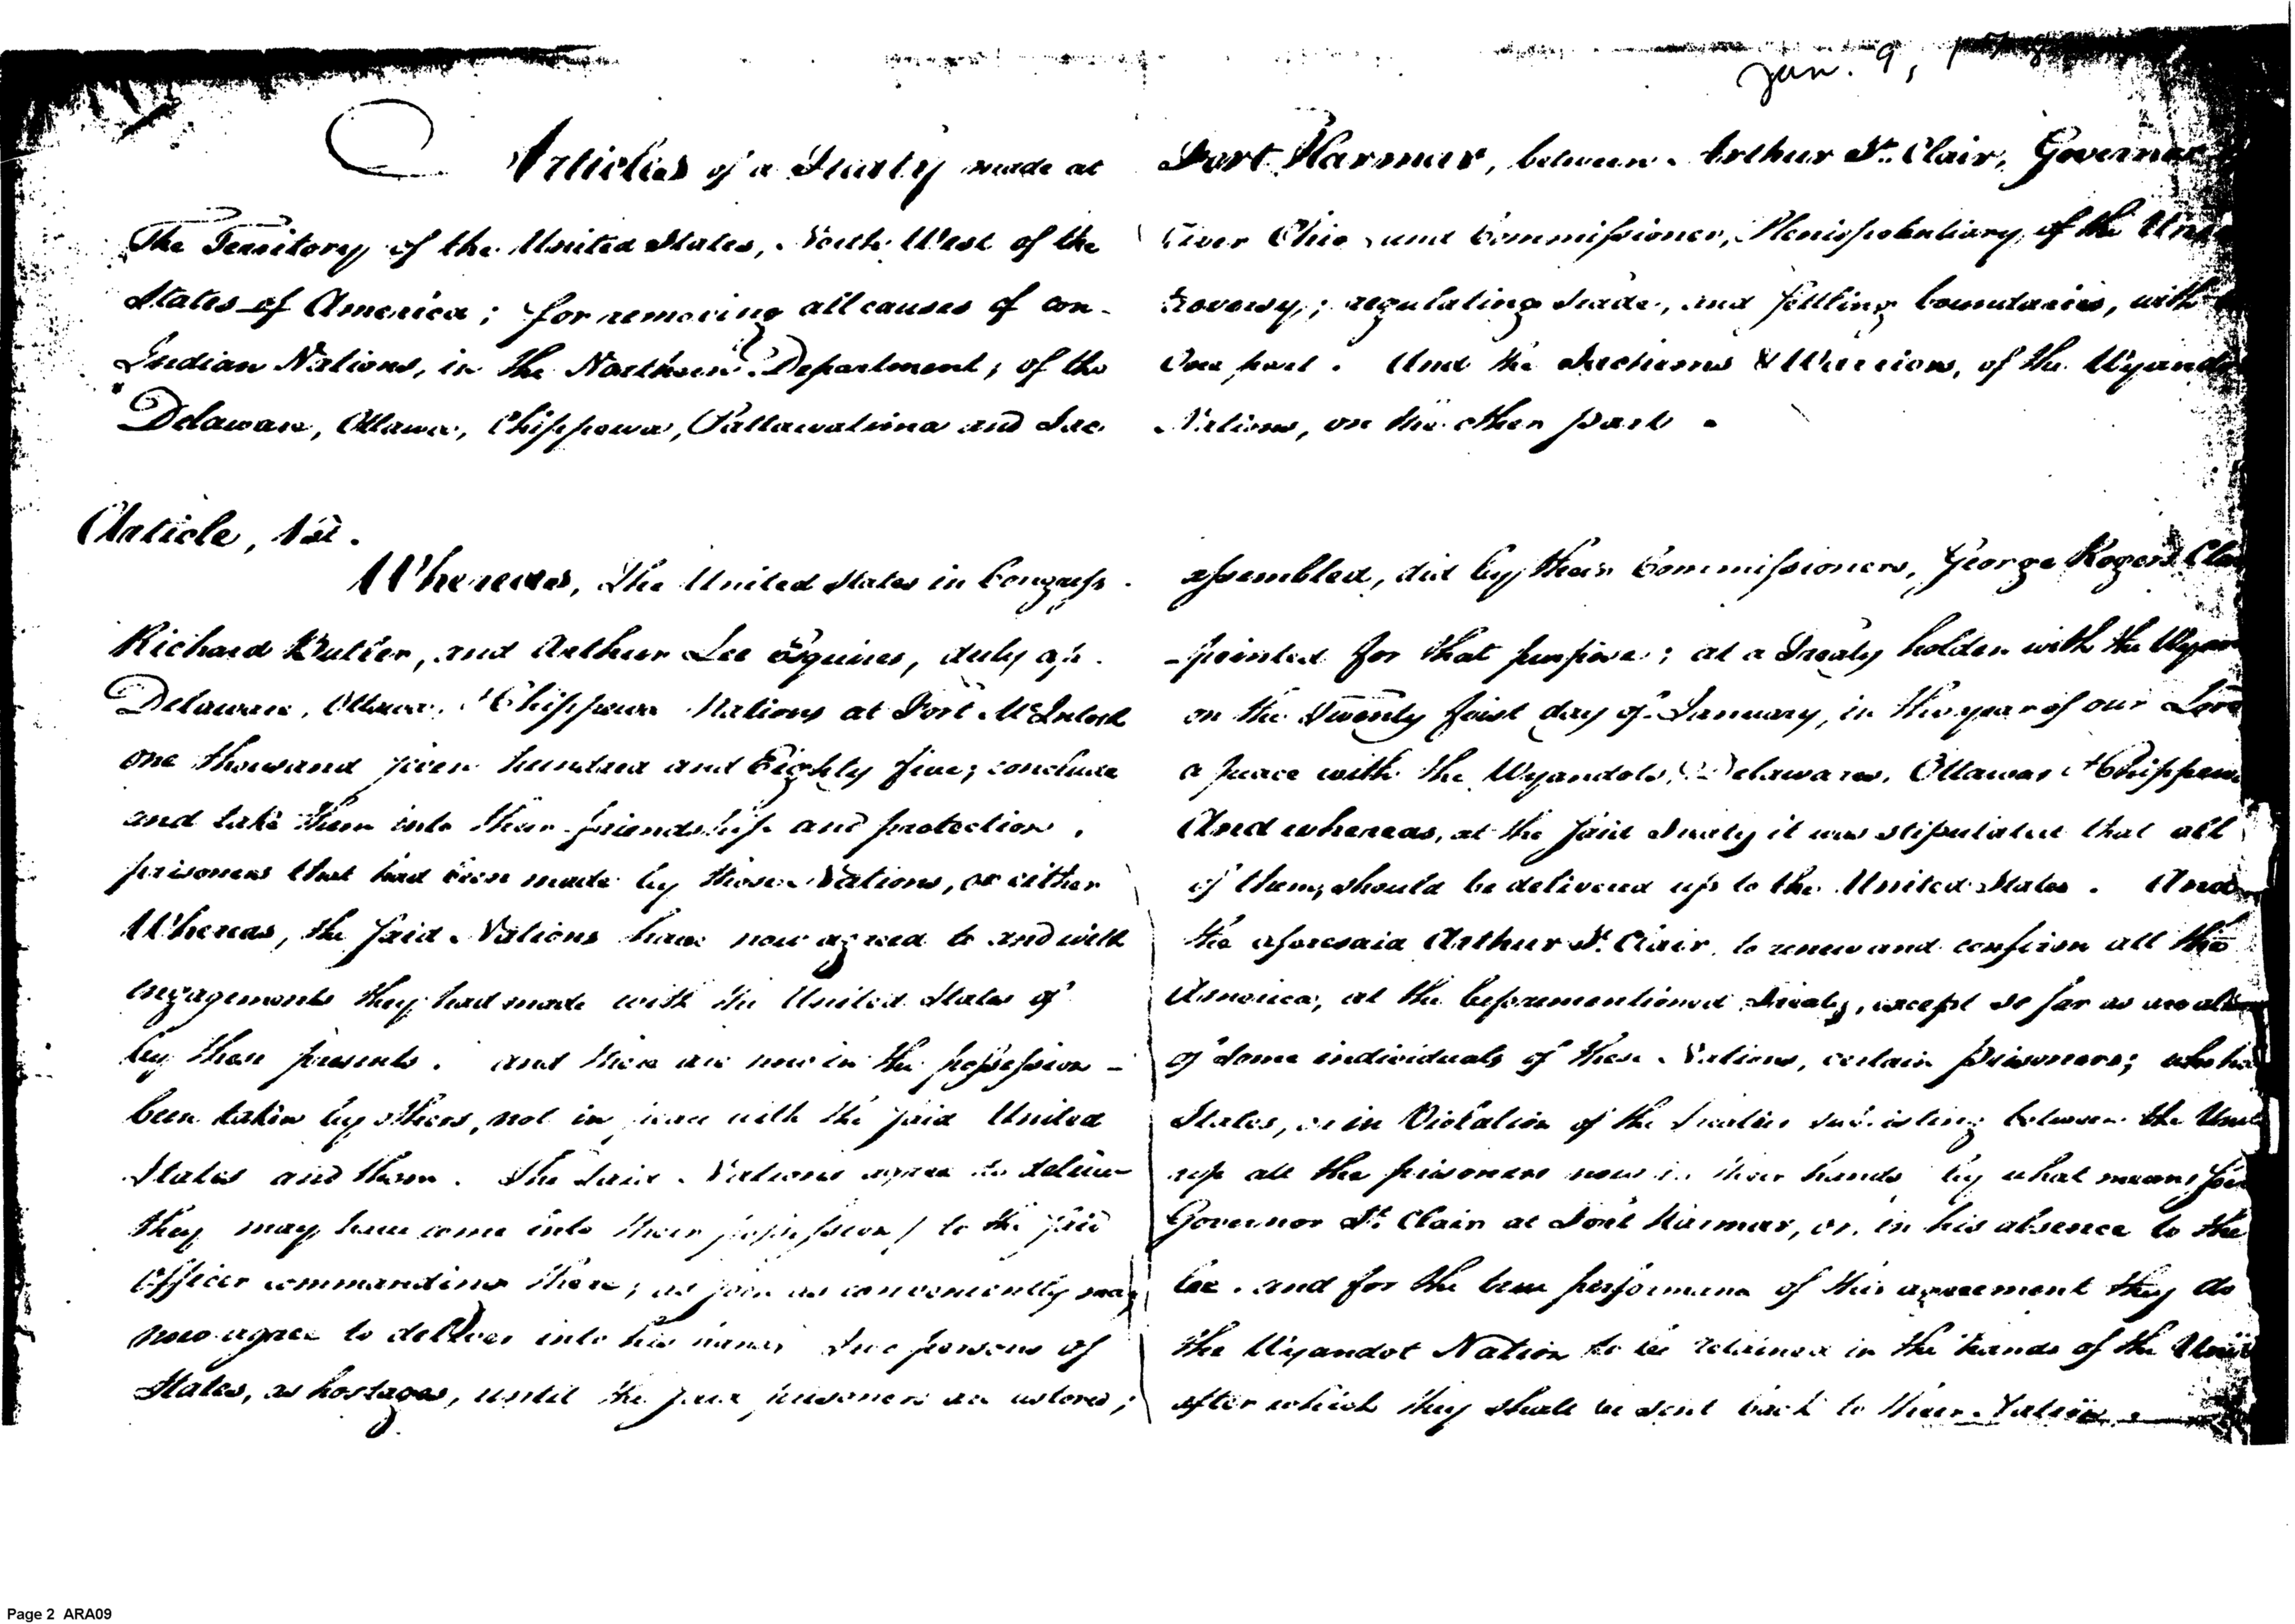 Jan. 9,
Articles of a Treaty made at Fort Harmar, between Arthur St. Clair, Governor
The Territory of the United States, North West of the River Ohio and Commissioner, Plenipotentiary of the
States of America; for removing all causes of con- troversy; regulating trade, and settling boundaries, with
Indian Nations, in the Northern Department; of the One part. And the Sachems & Warriors, of the
Delaware, Ottawa, Chippewa, Pattawatima and Sac Nations, on the other part.
Article, 1st.
Whereas, the United States in Congress assembled, did by their Commissioners, George Rogers
Richard Butler, and Arthur Lee Esquires, duly ap- -pointed for that purpose; at a Treaty holden with the
Delaware, Ottawa, & Chippewa Nations at Fort McIntosh on the Twenty first day of January, in the year of our Lord
one thousand seven hundred and Eighty five; conclude a peace with the Wyandots, Delawares, Ottawas & Chippewas
and take them into their friendship and protection. And whereas, at the said Treaty it was stipulated that all
prisoners that had been made by those Nations, or either of them, should be delivered up to the United States. And
Whereas, the said Nations have now agreed to and with the aforesaid Arthur St. Clair, to renew and confirm all the
engagements they had made with the United States of America, at the beforementioned Treaty, except so far as are
by these presents. and there are now in the possession - of some individuals of these Nations, certain prisoners; who
been taken by others, not in peace with the said United States, or in Violation of the Treaties subsisting between the
States and them. The said Nations agree to deliver up all the prisoners now in their hands by what means
they may have come into their possession) to the said Governor St. Clair at Fort Harmar, or, in his absence to the
Officer commanding there; as soon as conveniently may be. and for the true performance of this agreement they do
now agree to deliver into his hands Two persons of the Wyandot Nation to be retained in the hands of the
States, as hostages, until the said prisoners are restored; after which they shall be sent back to their Nation.
Page 2 ARA09